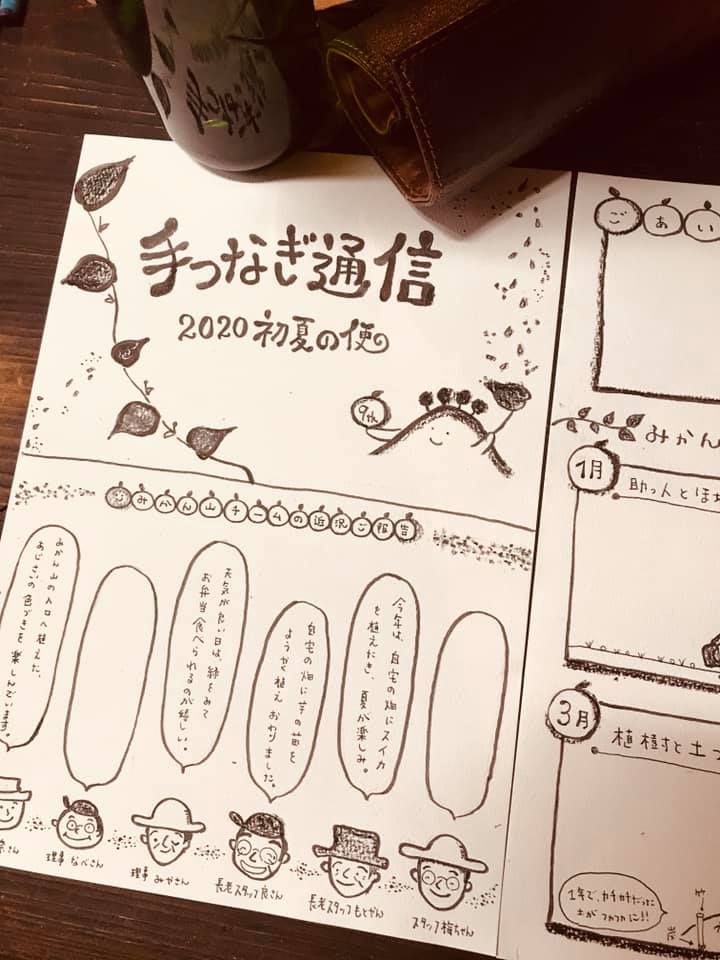 手つなぎ通信
2020 初夏の便り
9th
みかん山チームの近況ご報告
今年は、自宅の畑にスイカ
を植えたき、夏が楽しみ。
自宅の畑に芋の苗を
ようやく植えおわりました。
天気が良い日は、緑をみて
お弁当食べられるのが嬉しい。
みかん山の入口へ植えた、
あじさいの色づきを楽しんでいます。
理事 なべさん
理事 みかさん
長老スタッフ良さん
長老スタッフもとやん
スタッフ梅ちゃん
ごあい
みかん
1月
助っ人とほ
3月
植樹と土
1年で、カチカチだった
土がフカフカに!!
竹
炭